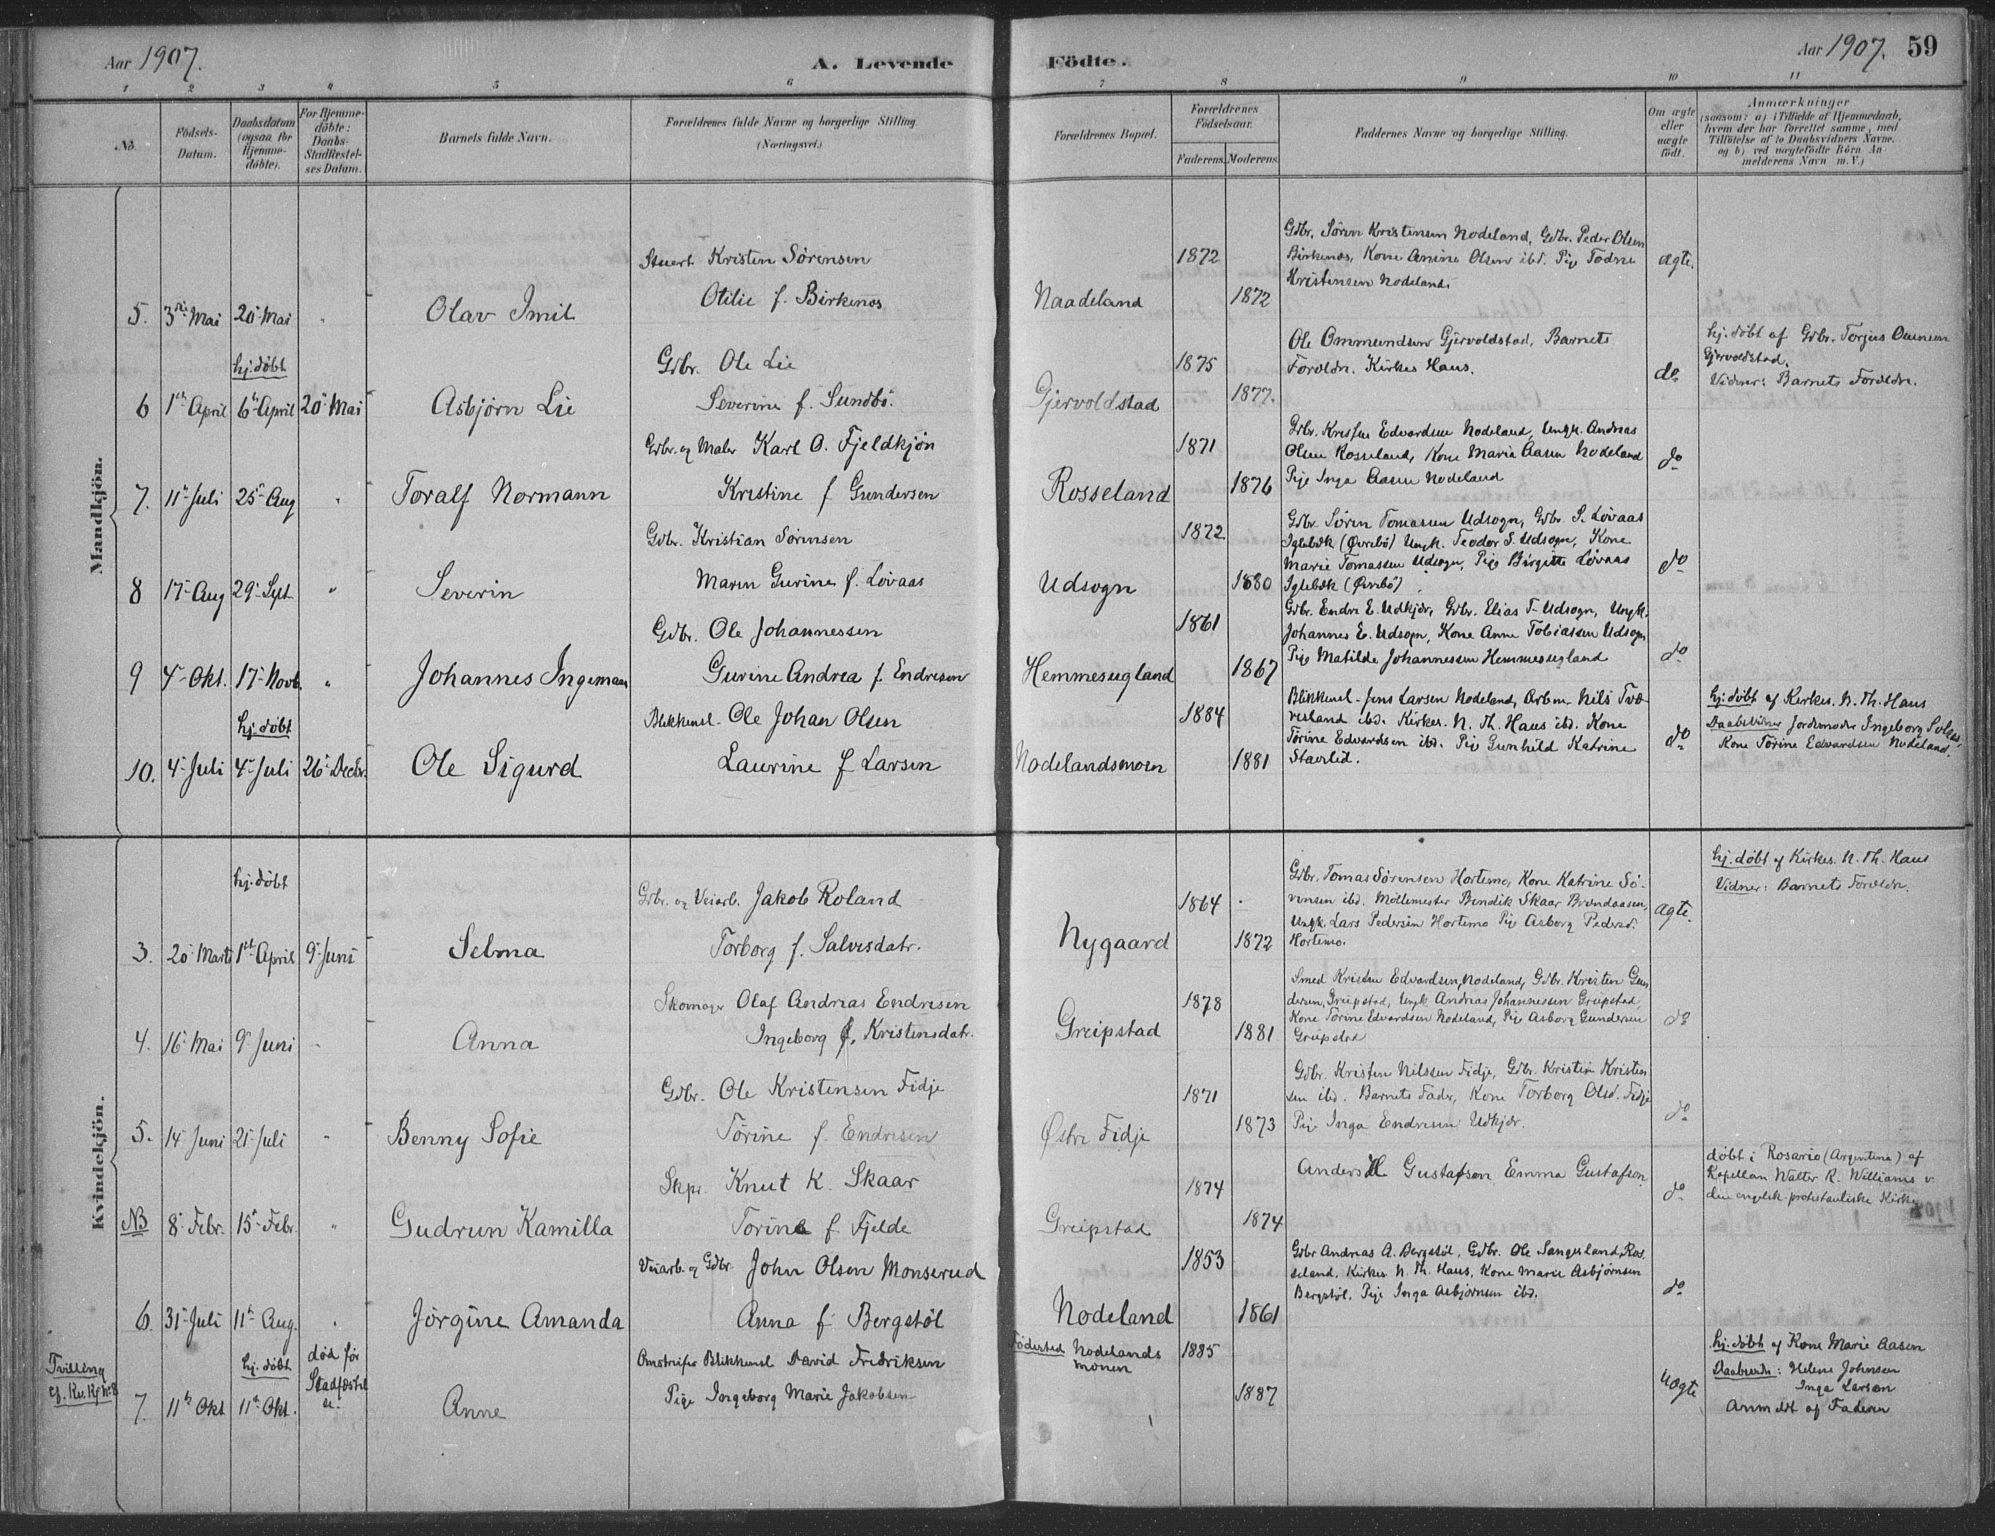 Aar 1907.
A. Levende Födte.
Aar 1907. 59
1 2 3 4 5 6 7 8 9 10 11
No.
Födsels-Datum.
Daabsdatum (ogsaa for Hjemme-döbte).
For Hjemme-döbte: Daabs-Stadfæstel-ses Datum.
Barnets fulde Navn.
Forældrenes fulde Navne og borgerlige Stilling. (Næringsvei.)
Forældrenes Bopæl.
Forældrenes Födselsaar.
Faderens. Moderens.
Faddernes Navne og borgerlige Stilling.
Om ægte eller uægte födt.
Anmærkninger
(saasom: a) i Tilfælde af Hjemmedaab, hvem der har forrettet samme, med Tilföielse af to Daabsvidners Navne. og b) ved uægtefödte Börn An-melderens Navn m. V.)
Mandkjön.
5. 3die Mai 20. Mai " Olav Imil
Stuert Kristen Sörensen
Otilie f. Birkenes
Naadeland 1872 1872
Gdbr. Sören Kristensen Nodeland, Gdbr. Peder Olsen
Birkenes, Kone Anine Olsen ibd. Pige Todne
Kristensen Nodeland.
ægte.
hj. döbt
6 1ste April 6te April 20. Mai Asbjörn Lie
Gdbr. Ole Lie
Severine f. Sundbö.
Gjervoldstad 1875 1877.
Ole Ommundsen Gjervoldstad, Barnets
Foreldn. Kirkes. Haus.
do
hj. döbt af Gdbr. Torjus
Gjervoldstad.
Vidner: Barnets Foreldn.
7. 11te Juli 25. Aug " Toralf Normann
Gdbr. og Maler Karl O. Fjeldkjön
Kristine f Gundersen
Rosseland 1871 1876
Gdbr. Kristen Edvardsen Nodeland, Ungk. Andreas
Olsen Rosseland, Kone Maria Aasen Nodeland
Pige Inga Aasen Nodeland
do
8 17. Aug 29. Sept " Severin
Gdbr. Kristian Sörensen
Maren Gurine f. Lövaas
Udsogn 1872 1880
Gdbr Sören Tomassen Udsogn, Gdbr. S. Lövaas
Iglebæk (Övrebö) Ungk. Teodor S. Udsogn, Kone
Marie Tomassen Udsogn, Pige Birgitte Lövaas
Iglebæk (Övrebö)
do
9 4. Okt. 17. Novb. " Johannes Ingeman
Gdbr. Ole Johannessen
Gurine Andrea f. Endresen
Hemmesugland 1861 1867
Gdbr. Endre E. Udkjær, Gdbr. Elias T. Udsogn, Ungk.
Johannes E. Udsogn, Kone Anne Tobiassen Udsogn
Pige Matilde Johannessen Hemmesugland
do
hj. döbt
10. 4. Juli 4. Juli 26. Decbr. Ole Sigurd
Blikkensl. Ole Johan Olsen
Laurine f Larsen
Nodelandsmoen 1884 1881
Blikkensl. Jens Larsen Nodeland, Arbm. Nils Tve-
resland ibd. Kirkes. N. Th. Haus ibd. Kone
Törine Edvardsen ibd. Pige Gunhild Katrine
Staurlid.
do
hj. döbt af Kirkes. N. Th. Haus
Daabsvidner Jordemoder Ingeborg
Kone Törine Edvardsen Nodeland
Kvindekjön.
hj. döbt
3. 20. Marts 1ste April 9. Juni Selma
Gdbr. og Veiarb. Jakob Roland
Torborg f. Salvesdatr.
Nygaard 1864 1872
Gdbr. Tomas Sörensen Hortemo, Kone Katrine Sö-
rensen ibd. Möllemester Bendik Skaar Brandaasen,
Ungk. Lars Pedersen Hortemo Pige Asborg Pedersd.
Hortemo.
ægte.
hj. döbt af Kirkes. N. Th. Haus
Vidner: Barnets Foreldn.
4. 16. Mai 9. Juni " Anna
Skomager Olaf Andreas Endresen
Ingeborg f. Kristensdatr.
Greipstad 1878 1881
Smed Kristen Edvardsen, Nodeland, Gdbr. Kristen Gun-
dersen, Greipstad, Ungk Andreas Johannessen Greipstad
Kone Törine Edvardsen Nodeland, Pige Asborg Gundersen
Greipstad
do
5. 14. Juni 21. Juli " Benny Sofie
Gdbr. Ole Kristensen Fidje
Törine f. Endresen
Östre Fidje 1871 1873
Gdbr. Kristen Nilssen Fidje, Gdbr. Kristen Kristen-
sen ibd. Barnets Fader, Kone Torborg Olsd. Fidje
Pige Inga Endresen Udkjær.
do
NB 8. Febr. 15. Febr. " Gudrun Kamilla
Skpr. Knut K. Skaar
Torine f Fjelde
Greipstad 1874 1874
Anders H. Gustafson Emma Gustafson
do
döbt i Rosario (Argentina) af
Kapellan Walter R. Williams v.
den engelsk protestantiske Kirke
6. 31. Juli 11te Aug. " Jörgine Amanda
Veiarb. og Gdbr. John Olsen Monserud
Anna f Bergstöl
Nodeland 1853 1861
Gdbr Andreas A. Bergstöl, Gdbr. Ole Sangesland, Ros-
seland, Kirkes. N. Th. Haus, Kone Marie Asbjörnsen
Bergstöl, Pige Inga Asbjörnsen ibd.
do
Tvilling
cf. Kv. Kj. No 8
hj. döbt
död för
Stadfæstel
se.
7. 11te Okt 11te Okt. Anne
Omstreifer Blikkensl David Fredriksen
Pige Ingeborg Marie Jakobsen
Födested Nodelands
monen
1885 1887
uægte
hj. döbt af Kone Marie Aasen
Daabsvidn: Helene Johnsen
Inga Larsen
Anmeldt af Faderen